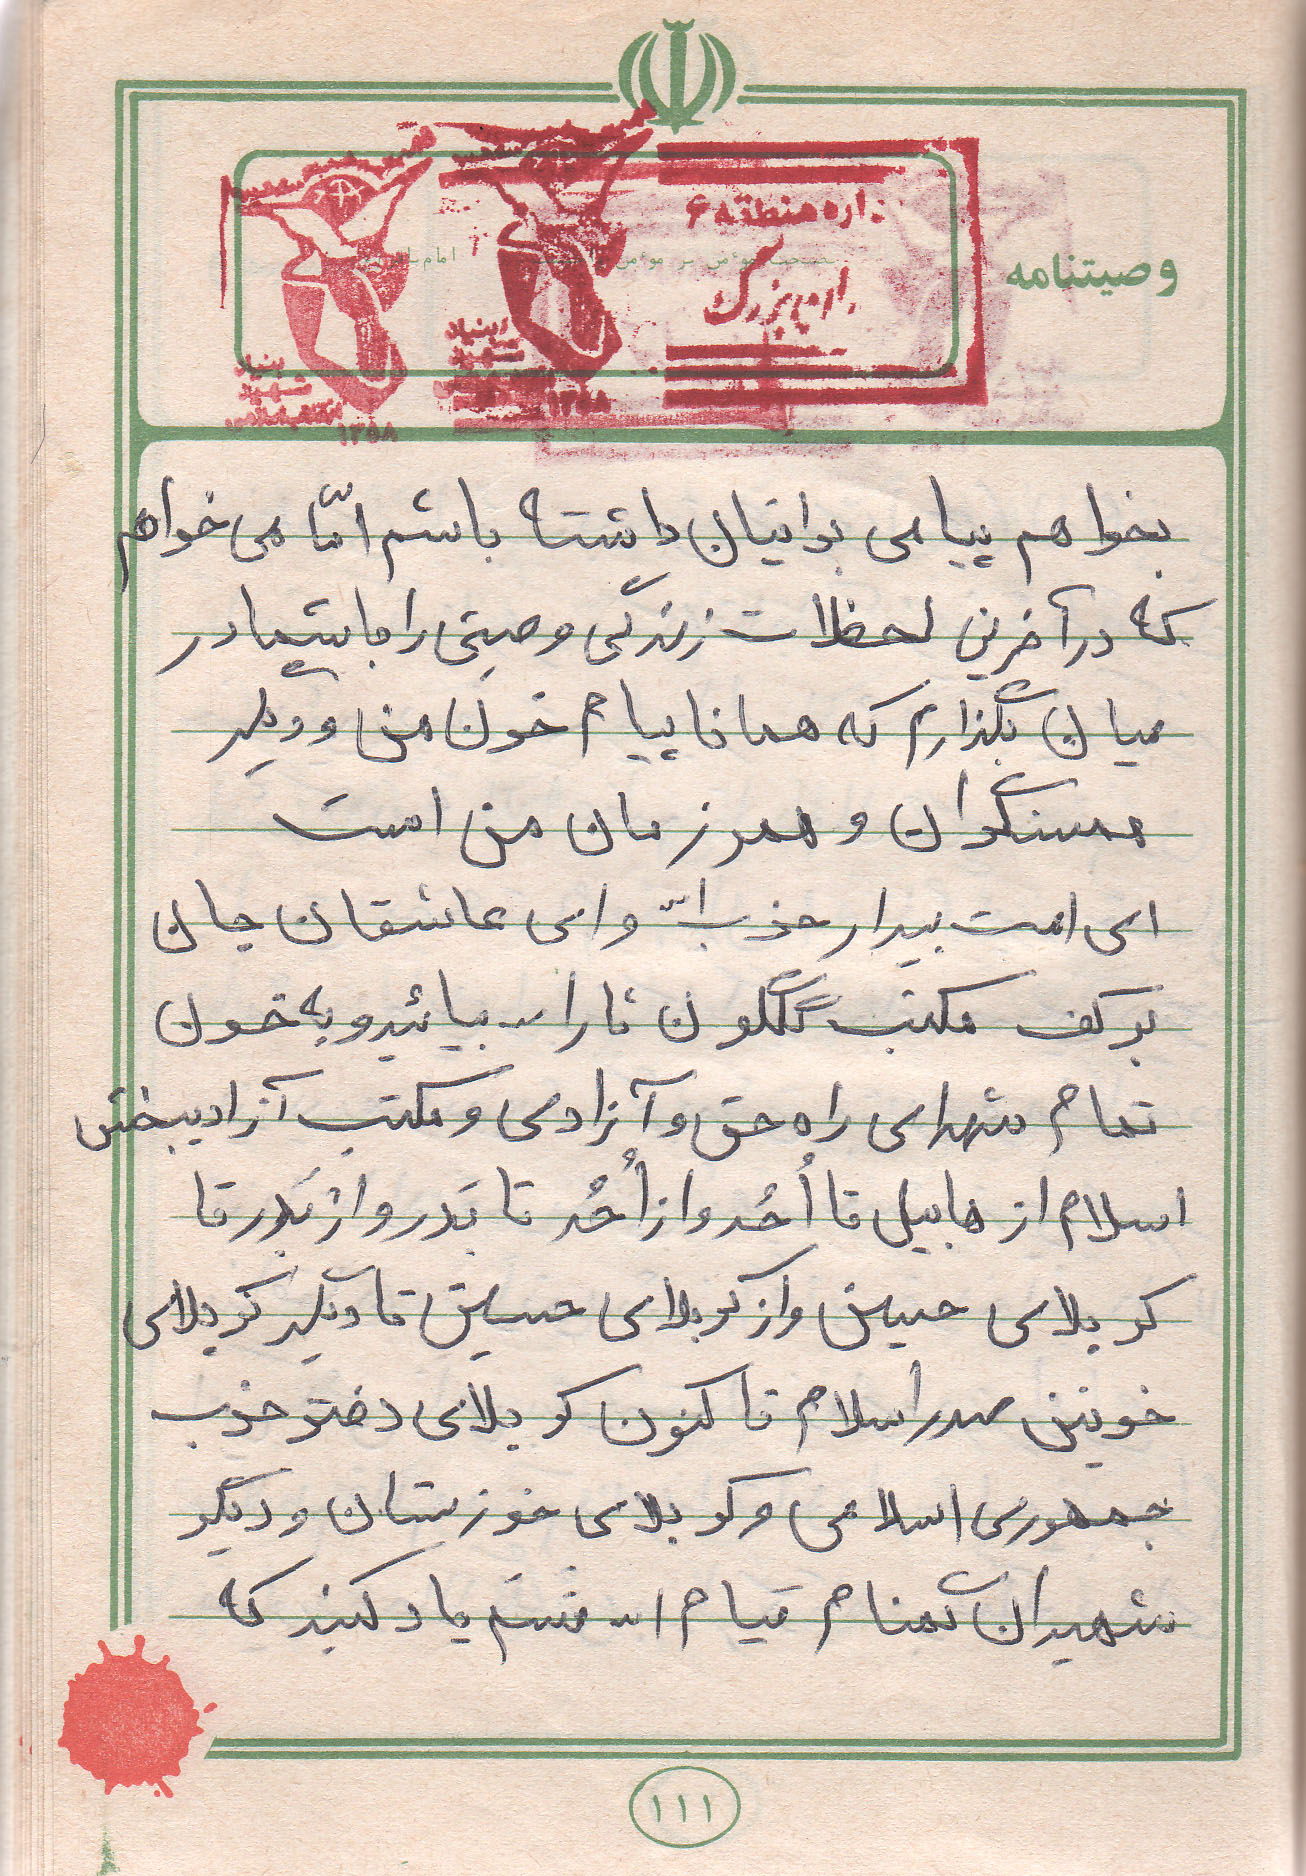 وصیتنامه
اداره منطقه ۶
تهران بزرگ
بنیاد
شهید
انقلاب اسلامی
۱۳۵۸
بنیاد
شهید
۱۳۵۸
بخواهم پیامی برایتان داشته باشم امّا می‌خواهم
که در آخرین لحظات زندگی وصیتی را با شما در
میان بگذارم که همانا پیام خون من و دیگر
همسنگران و همرزمان من است
ای امت بیدار حزب الله و ای عاشقان جان
بر کف مکتب گلگون ثارالله بیائید و به خون
تمام شهدای راه حق و آزادی و مکتب آزادیبخش
اسلام از هابیل تا اُحُد و از اُحُد تا بَدر و از بَدر تا
کربلای حسین و از کربلای حسین تا دیگر کربلای
خونین صدر اسلام تا کنون کربلای دفتر حزب
جمهوری اسلامی و کربلای خوزستان و دیگر
شهیدان گمنام قیام الله قسم یاد کنید که
۱۱۱